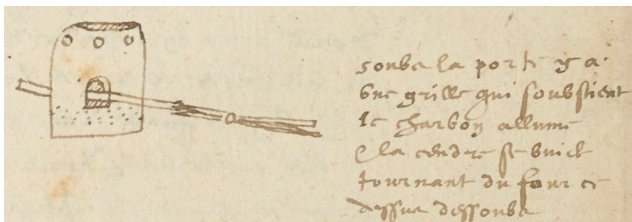 soubs la porte y a
une grille qui soubstient
le charbon allume
& la cendre se vuide
tournant du four ce
dessus dessoubs